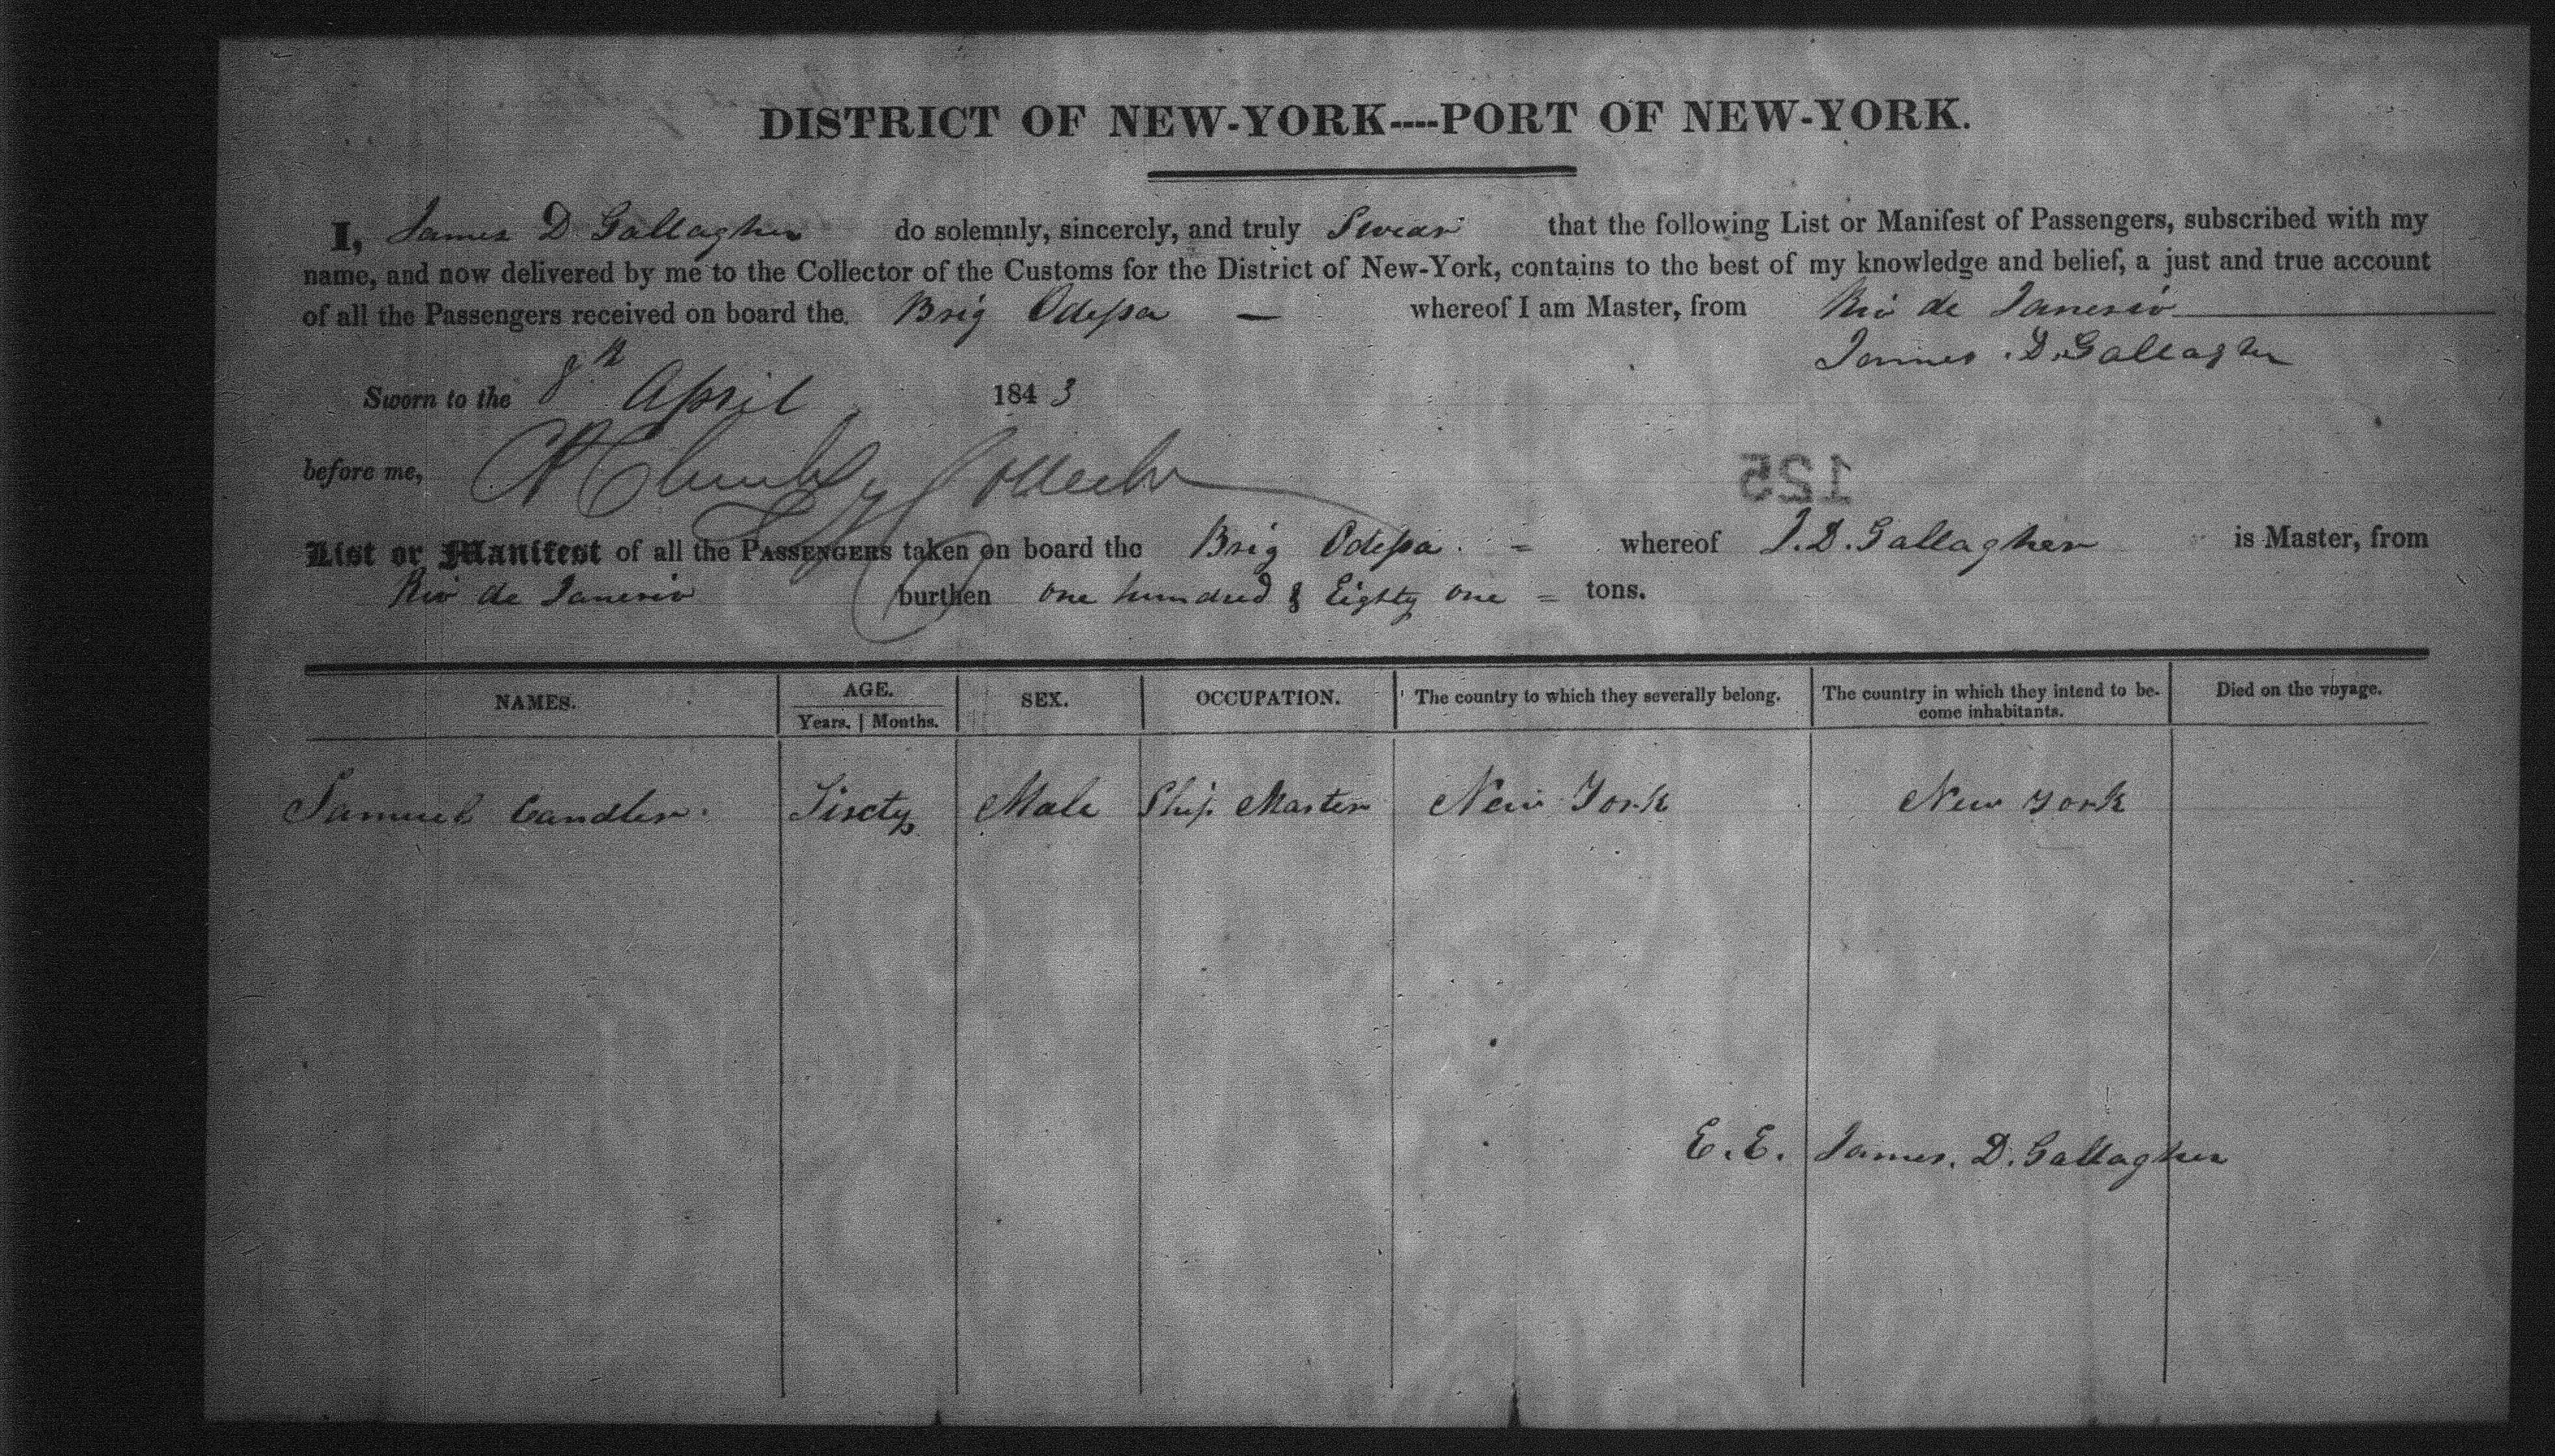 DISTRICT OF NEW-YORK----PORT OF NEW-YORK.
I, James D Gallagher do solemnly, sincerely, and truly Swear that the following List or Manifest of Passengers, subscribed with my
name, and now delivered by me to the Collector of the Customs for the District of New-York, contains to the best of my knowledge and belief, a just and true account
of all the Passengers received on board the Brig Odessa — whereof I am Master, from Rio de Janerio
James . D. Gallagher
Sworn to the 8th April 1843
before me, Collector
125
List or Manifest of all the PASSENGERS taken on board the Brig Odessa. = whereof J. D. Gallagher is Master, from
Rio de Janerio burthen one hundred & Eighty one = tons.
NAMES. AGE. SEX. OCCUPATION. The country to which they severally belong. The country in which they intend to be- Died on the voyage.
Years. | Months. come inhabitants.
Samuel Candler. Sixty Male Ship Master New York New York
E. E. James. D. Gallagher